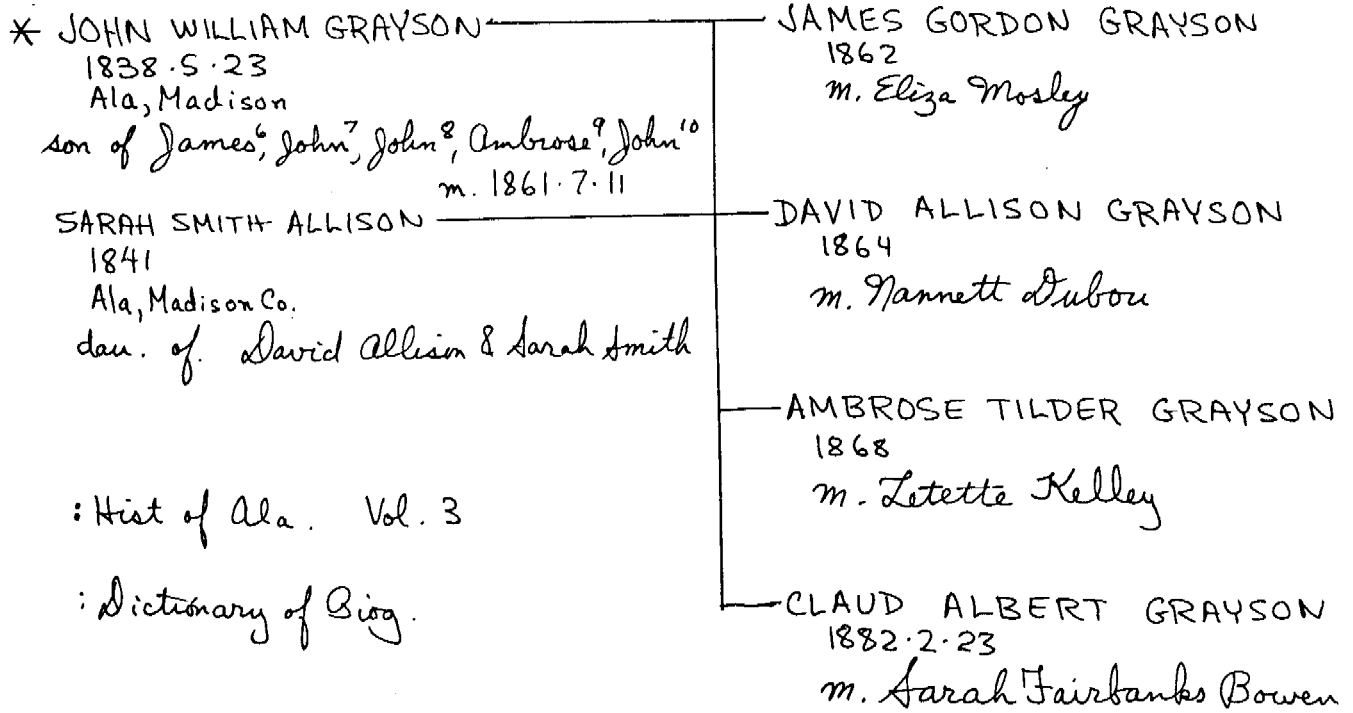 * JOHN WILLIAM GRAYSON
1838·5·23
Ala, Madison
son of James⁶, John⁷, John⁸, Ambrose⁹, John¹⁰
m. 1861·7·11
SARAH SMITH ALLISON
1841
Ala, Madison Co.
dau. of. David Allison & Sarah Smith
: Hist of Ala. Vol. 3
: Dictionary of Biog.
JAMES GORDON GRAYSON
1862
m. Eliza Mosley
DAVID ALLISON GRAYSON
1864
m. Nannett Dubou
AMBROSE TILDER GRAYSON
1868
m. Letette Kelley
CLAUD ALBERT GRAYSON
1882·2·23
m. Sarah Fairbanks Bowen